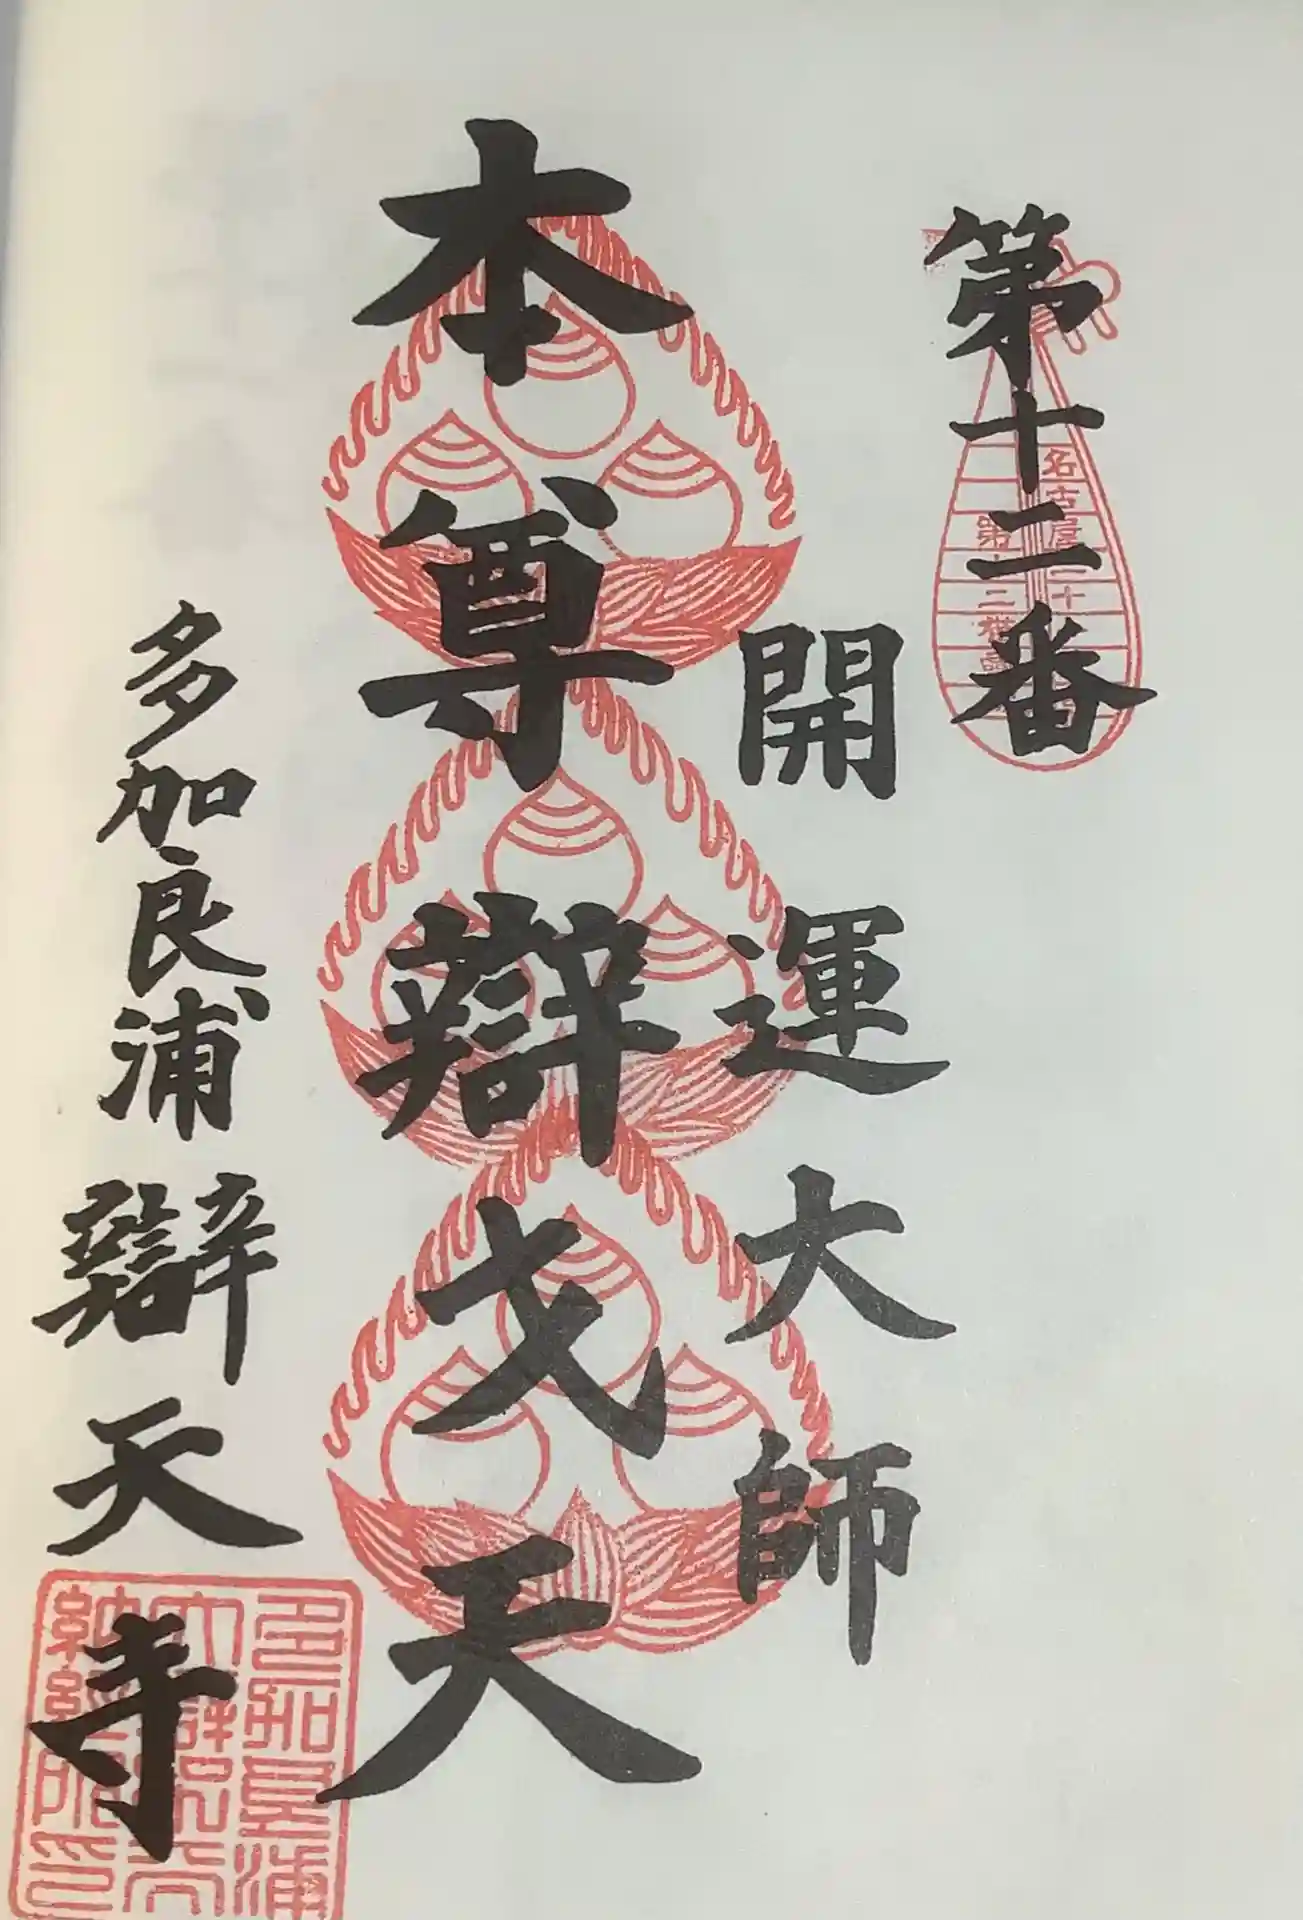 第十二番
開運大師
本尊辯戈天
多加良浦辯天寺
名古屋二十
第十二番
多加良浦
大辯財天
納経所印